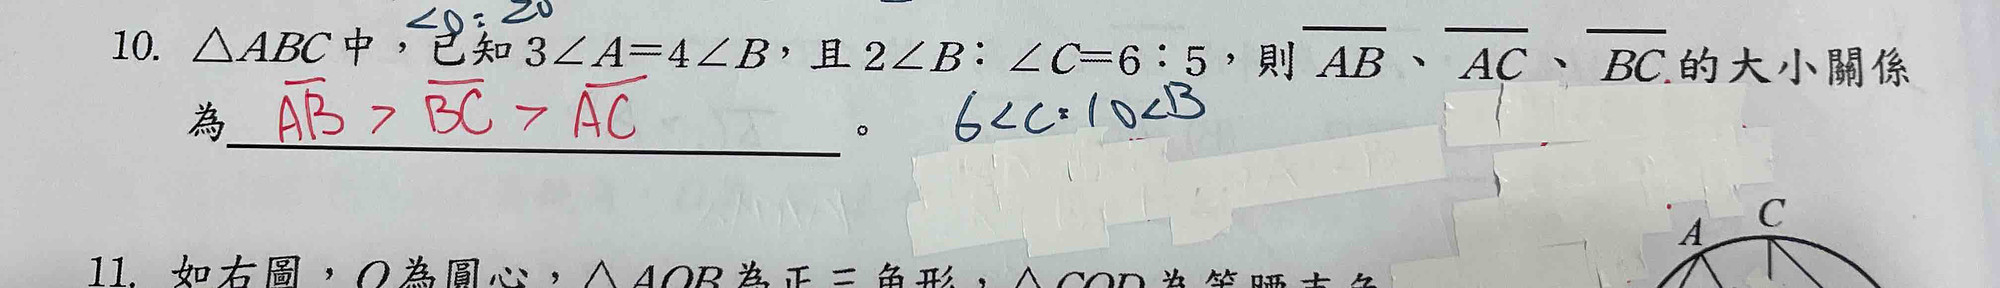 10. △ABC中，已知3∠A=4∠B，且2∠B：∠C=6：5，則AB、AC、BC的大小關係
為 AB > BC > AC 。 6∠C=10∠B
A C
11. 如右圖，O為圓心，△AOB為正三角形，△COD為等腰直角